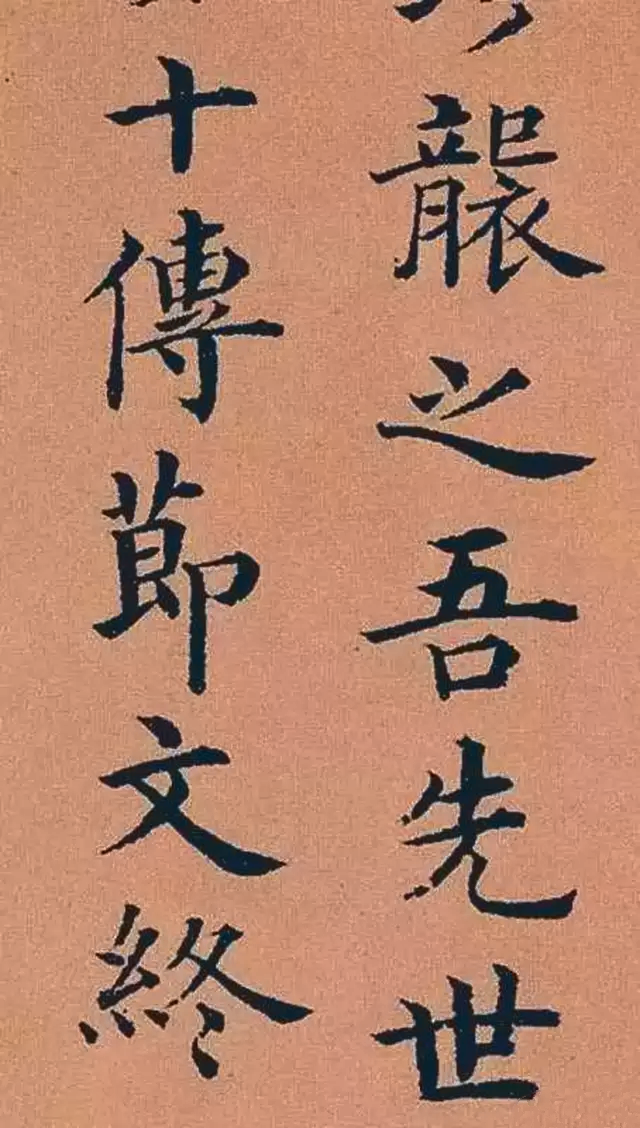 襲之吾先世
十傳節文終